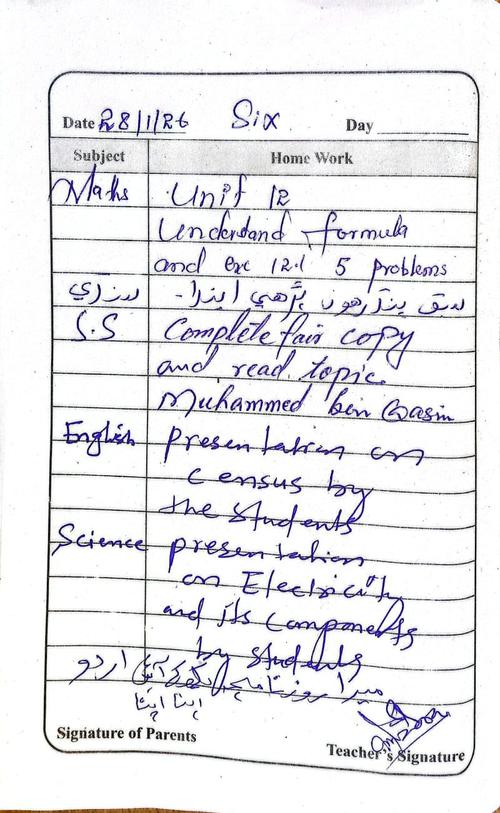 Date 28/1/26 Six Day
Subject Home Work
Maths Unit 12
Understand formula
and exc 12.1 5 problems
سنڌي سبق پندرهون پڙهي ايندا۔
S.S Complete fair copy
and read topic
Muhammed bin Qasim
English presentation on
census by
the students
Science presentation
on Electricity
and its components
by students
اردو میرا روزنامچہ لکھ کے آئیں
اپنا اپنا
Signature of Parents Teacher's Signature